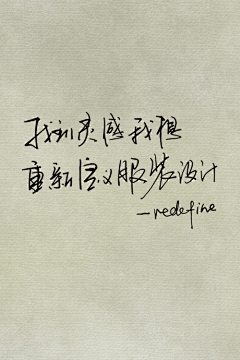 找到灵感我想
重新定义服装设计
—redefine